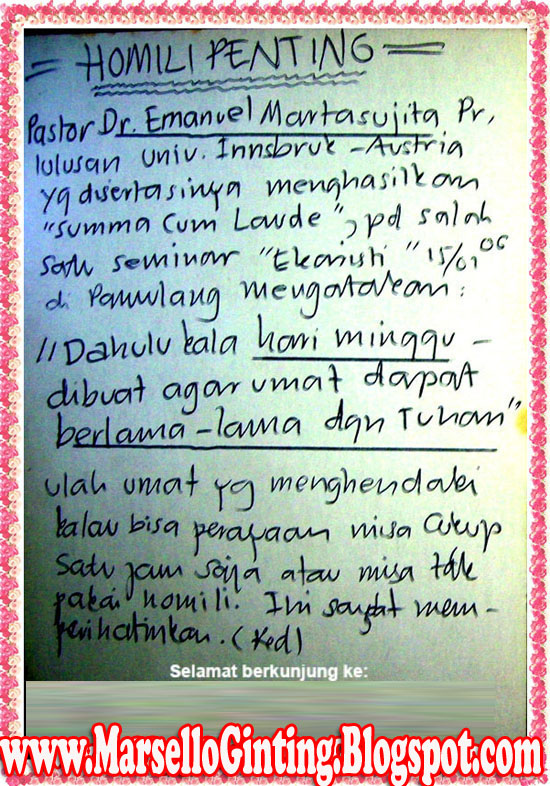 = HOMILI PENTING =
Pastor Dr. Emanuel Martasujita Pr,
lulusan univ. Innsbruk - Austria
yg disertasinya menghasilkan
"Summa Cum Laude", pd salah
satu seminar "Ekaristi" 15/01 06
di Pamulang mengatakan:
"Dahulu kala hari minggu -
dibuat agar umat dapat
berlama-lama dgn Tuhan"
ulah umat yg menghendaki
kalau bisa perayaan misa cukup
satu jam saja atau misa tdk
pakai homili. Ini sangat mem-
perihatinkan. (Red)
Selamat berkunjung ke:
www.MarselloGinting.Blogspot.com